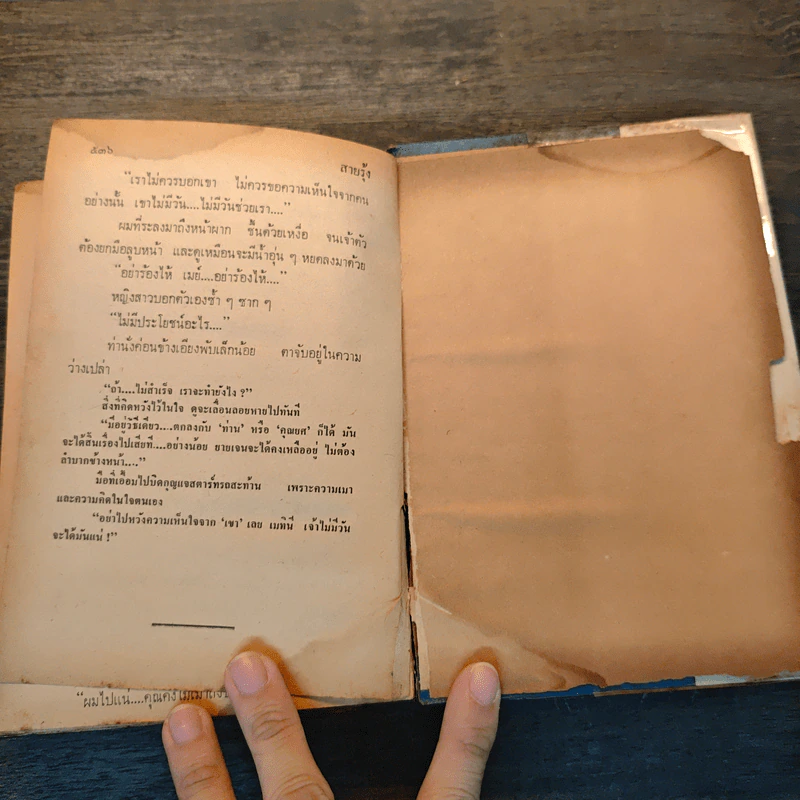 ๕๓๖
สายรุ้ง
“เราไม่ควรบอกเขา ไม่ควรขอความเห็นใจจากคน
อย่างนั้น เขาไม่มีวัน....ไม่มีวันช่วยเรา....”
ผมที่ระลงมาถึงหน้าผาก ชื้นด้วยเหงื่อ จนเจ้าตัว
ต้องยกมือลูบหน้า และดูเหมือนจะมีน้ำอุ่น ๆ หยดลงมาด้วย
“อย่าร้องไห้ เมย์....อย่าร้องไห้....”
หญิงสาวบอกตัวเองซ้ำ ๆ ซาก ๆ
“ไม่มีประโยชน์อะไร....”
ท่านั่งค่อนข้างเอียงพับเล็กน้อย ตาจับอยู่ในความ
ว่างเปล่า
“ถ้า....ไม่สำเร็จ เราจะทำยังไง ?”
สิ่งที่คิดหวังไว้ในใจ ดูจะเลื่อนลอยหายไปทันที
“มีอยู่วิธีเดียว....ตกลงกับ ‘ท่าน’ หรือ ‘คุณยศ’ ก็ได้ มัน
จะได้สิ้นเรื่องไปเสียที....อย่างน้อย ยายเจนจะได้คงเหลืออยู่ ไม่ต้อง
ลำบากข้างหน้า....”
มือที่เอื้อมไปบิดกุญแจสตาร์ทรถสะท้าน เพราะความเมา
และความคิดในใจตนเอง
“อย่าไปหวังความเห็นใจจาก ‘เขา’ เลย เมทินี เจ้าไม่มีวัน
จะได้มันแน่ !”
“ผมไปแน่....คุณคง